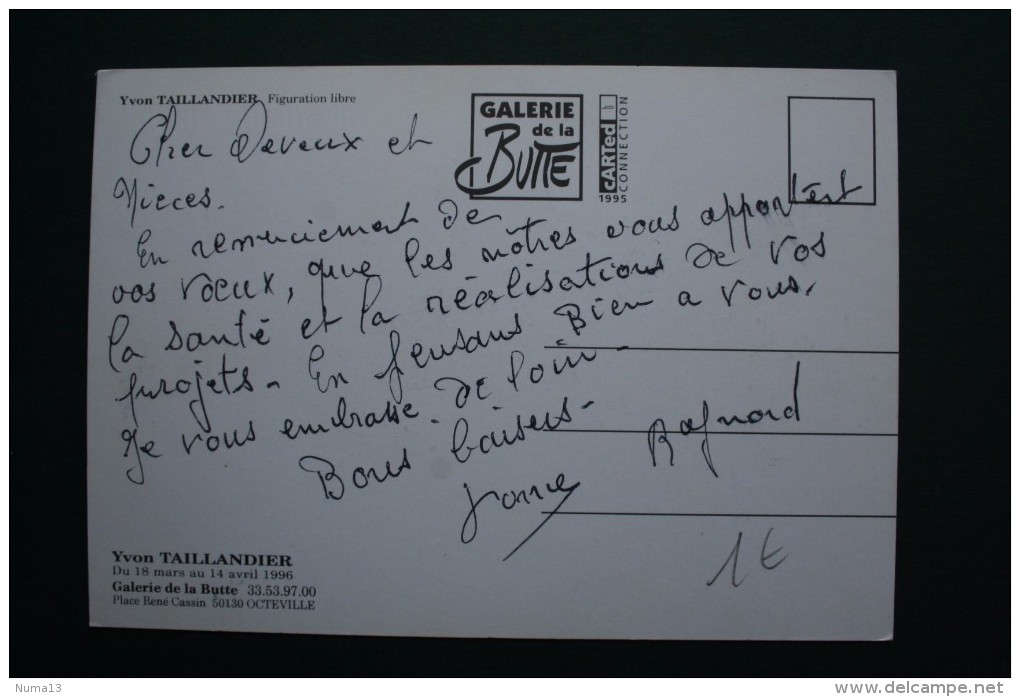 Yvon TAILLANDIER Figuration libre
GALERIE
de la
BUTTE
CARTed
CONNECTION
1995
Cher Neveux et
Nieces.
En remerciement de
vos vœux, que les nôtres vous apportent
la santé et la réalisations de vos
projets. En pensant Bien a vous.
Je vous embrasse. de loin.
Bons baisers.
Raynard
Yvon TAILLANDIER
Du 18 mars au 14 avril 1996
Galerie de la Butte 33.53.97.00
Place René Cassin 50130 OCTEVILLE
1€
Numa13
www.delcampe.net